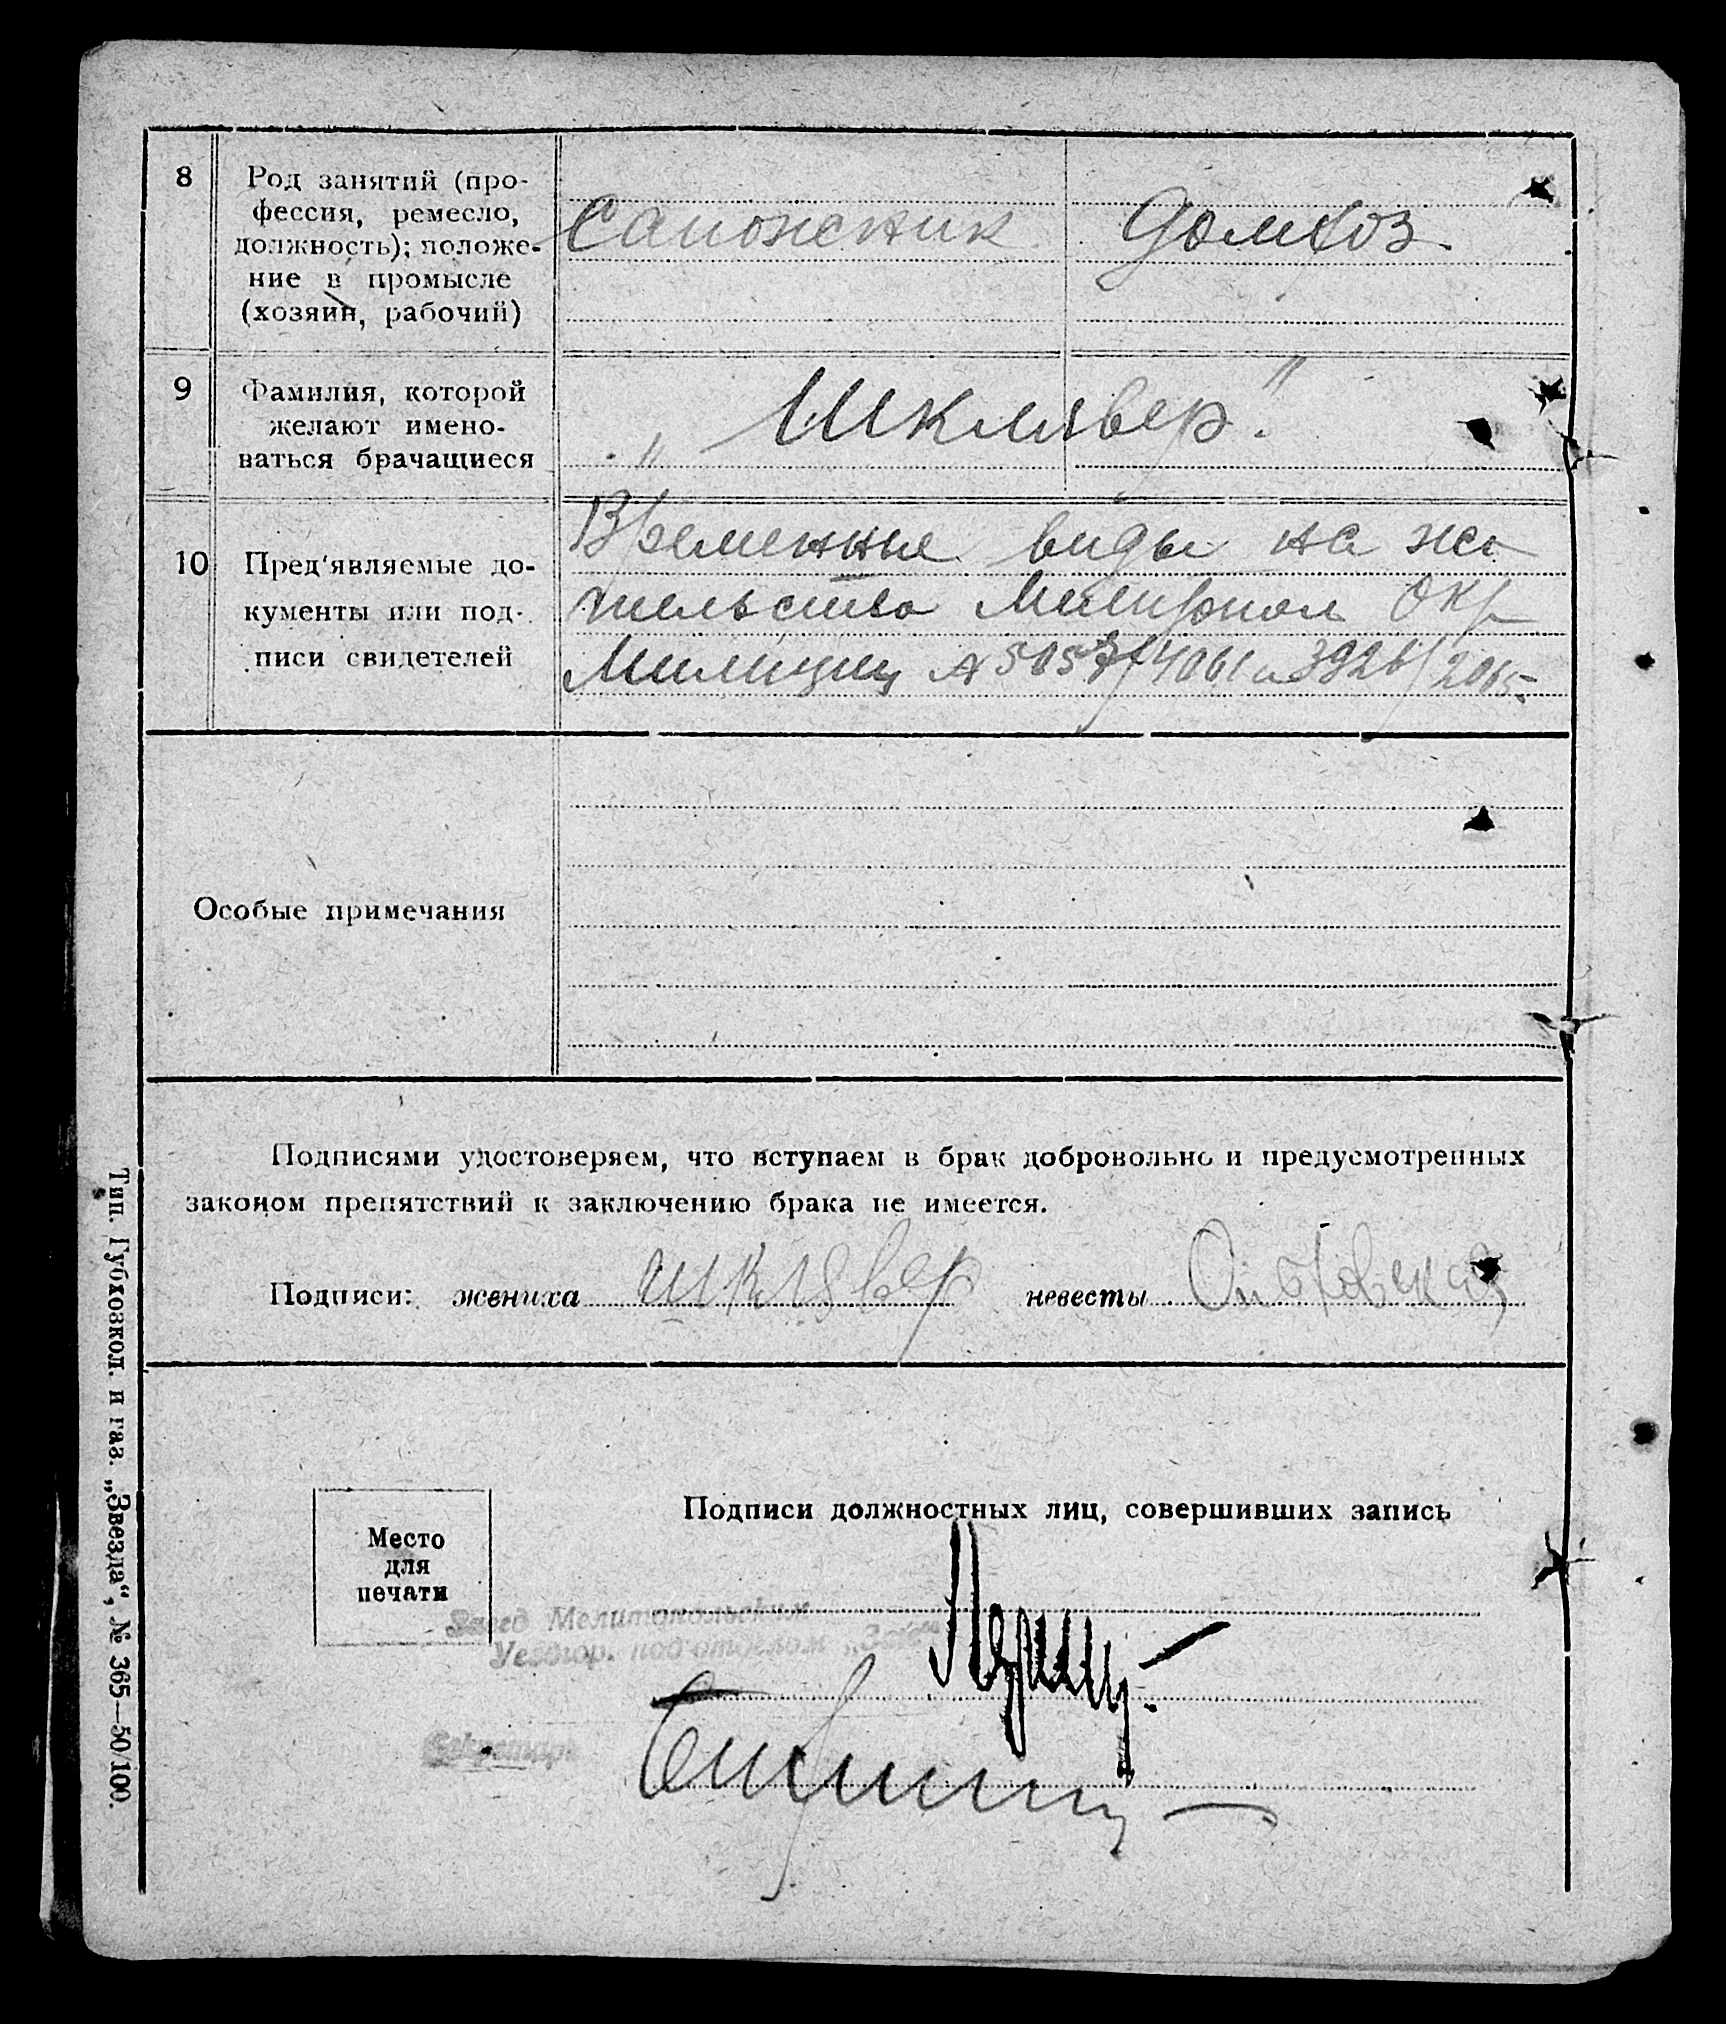 8
Род занятий (про-
фессия, ремесло,
должность); положе-
ние в промысле
(хозяин, рабочий)
Сапожник
домхоз.
9
Фамилия, которой
желают имено-
ваться брачащиеся
„Шклявер."
10
Пред'являемые до-
кументы или под-
писи свидетелей
Временные виды на жи
тельство Окр
Милиции № и
Особые примечания
Подписями удостоверяем, что вступаем в брак добровольно и предусмотренных
законом препятствий к заключению брака не имеется.
Подписи: жениха Шклявер невесты
Подписи должностных лиц, совершивших запись
Место
для
печати
Завед Мелитопольским
Уездгор. подотделом „Загс"
Секретарь
Тип. Губкозкол. и газ. „Звезда", № 365—50/100.